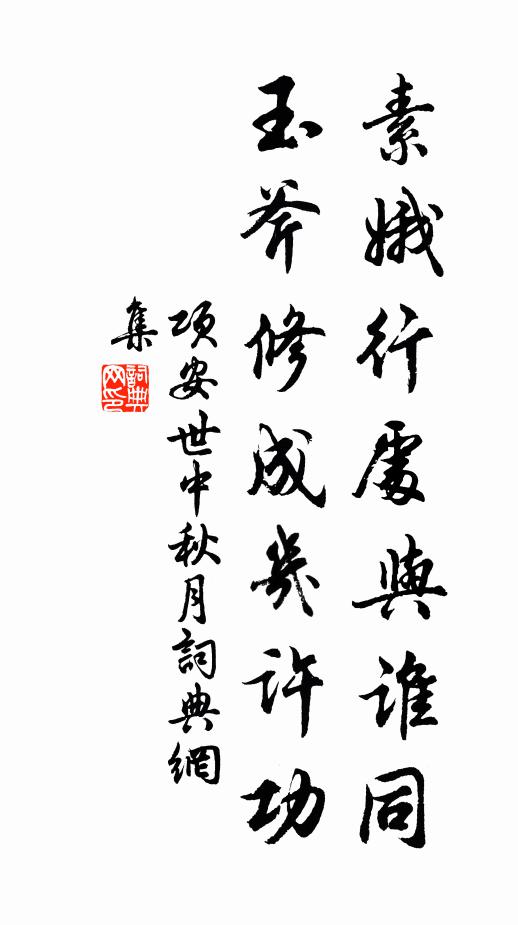 素娥行處與誰同
玉斧修成幾許功
項安世中秋月詞典網
集
詞典
网印